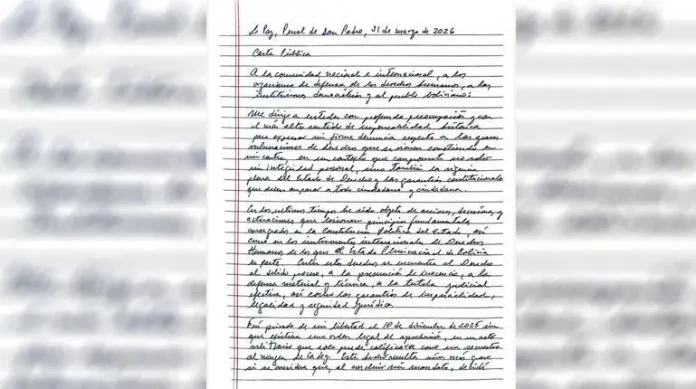 La Paz, Penal de San Pedro, 31 de marzo de 2026
Carta Pública
A la comunidad nacional e internacional, a los
organismos de defensa de los derechos humanos, a las
instituciones democráticas y al pueblo boliviano:
Me dirijo a ustedes con profunda preocupación y con
el más alto sentido de responsabilidad histórica
para expresar mi firme denuncia respecto a las graves
vulneraciones de derechos que se vienen cometiendo en
mi contra, en un contexto que compromete no solo
mi integridad personal, sino también la vigencia
plena del Estado de Derecho y las garantías constitucionales
que deben amparar a todo ciudadano y ciudadana.
En los últimos tiempos he sido objeto de acciones, decisiones y
actuaciones que lesionan principios fundamentales
consagrados en la Constitución Política del Estado, así
como en los instrumentos internacionales de Derechos
Humanos de los que el Estado Plurinacional de Bolivia
es parte. Entre estos derechos se encuentra el derecho
al debido proceso, a la presunción de inocencia, a la
defensa material y técnica, a la tutela judicial
efectiva, así como las garantías de imparcialidad,
legalidad y seguridad jurídica.
Fui privado de mi libertad el 10 de diciembre de 2025 sin
que existiera una orden legal de aprehensión, en un acto
arbitrario que solo puede calificarse como un secuestro
al margen de la ley. Este hecho resulta aún más grave
si se considera que, al concluir mi mandato, debió